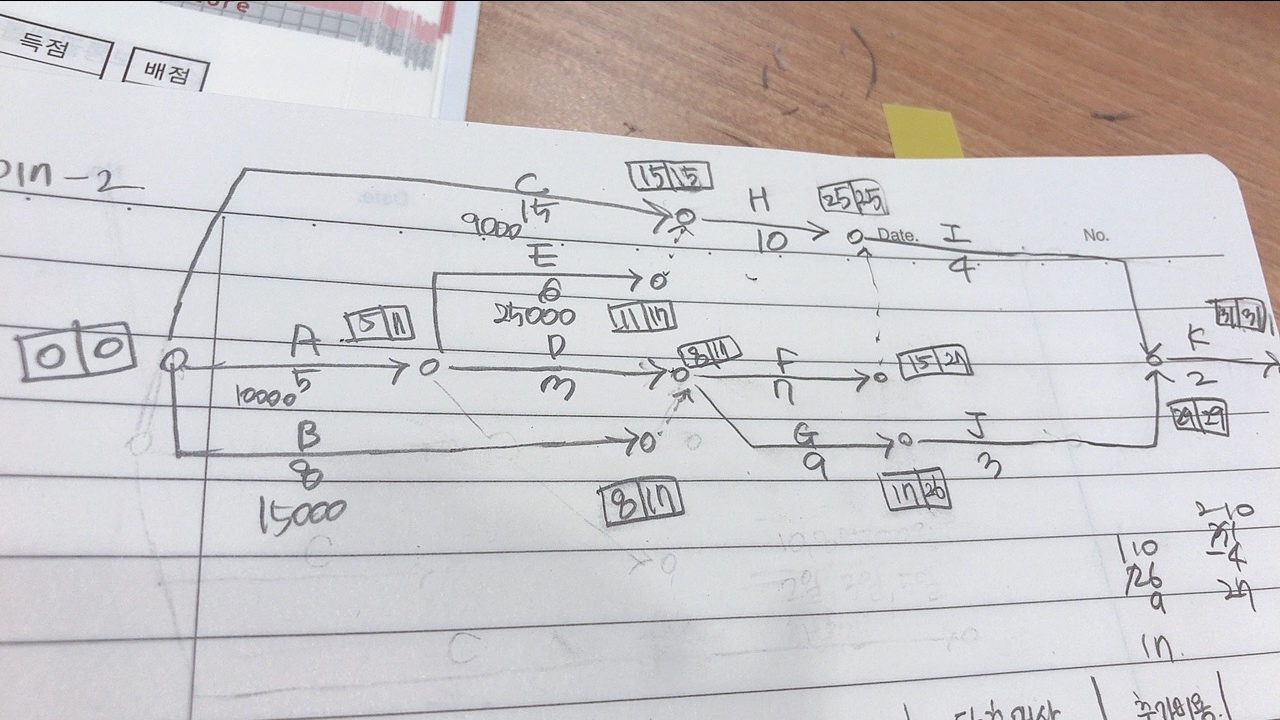 ore
득점
배점
-2
C
15
9000
15 15
H
10
25 25
Date.
I
4
No.
E
6
25000
11 17
0 0
A
5
10000
5 11
D
3
8 17
F
7
15 21
K
2
31 31
29 29
B
8
15000
8 17
G
9
17 26
J
3
110
26
9
17
-4
추가비용